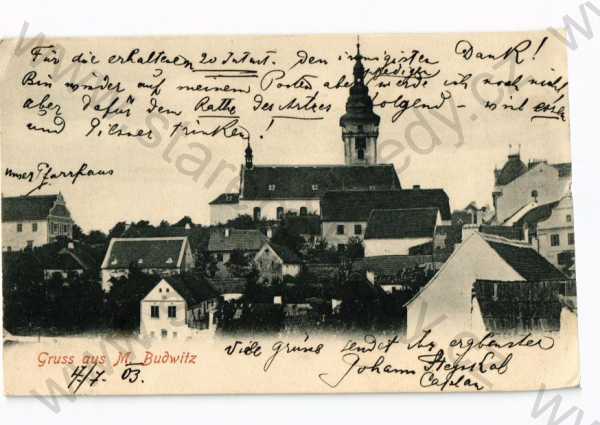 Für die erhaltenen 20 Intent. den innigsten Dank!
Bin wieder auf meinem Posten aber predigen werde ich noch nicht
aber dafür den Rathe des Arztes folgend – viel essen
und Pilsner trinken!
unser Pfarrhaus
Gruss aus M. Budwitz
4/7. 03.
Viele Grüße sendet Ihr ergbenster
Johann
Caplan